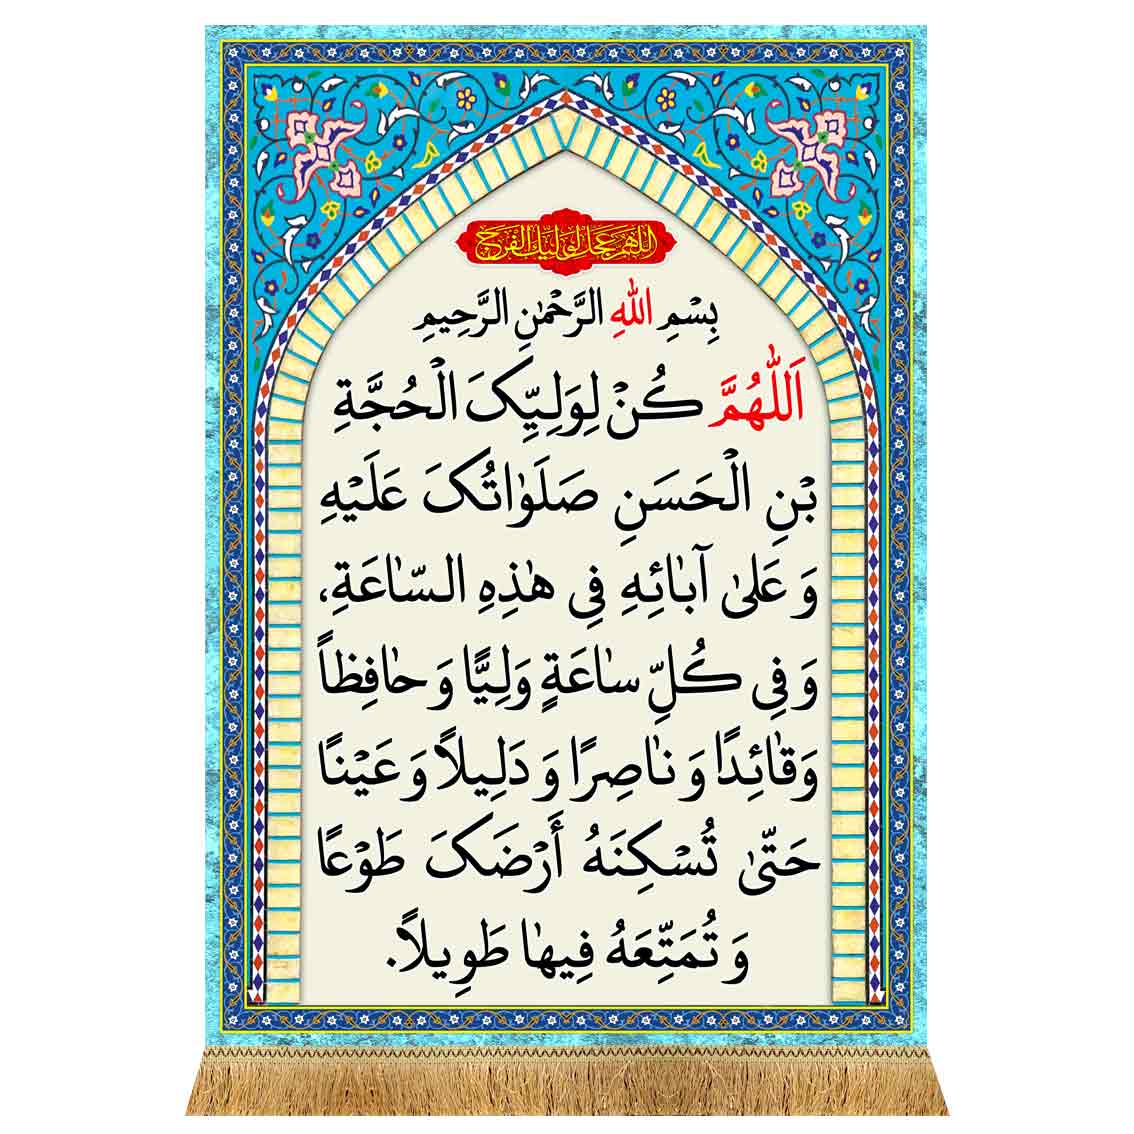 اللهم عجل لولیك الفرج
بِسْمِ اللهِ الرَّحْمٰنِ الرَّحِيمِ
اَللّٰهُمَّ كُنْ لِوَلِيِّكَ الْحُجَّةِ
بْنِ الْحَسَنِ صَلَوٰاتُكَ عَلَيْهِ
وَ عَلىٰ آبٰائِهِ فِي هٰذِهِ السّٰاعَةِ،
وَ فِي كُلِّ سٰاعَةٍ وَلِيًّا وَ حٰافِظاً
وَ قٰائِدًا وَ نٰاصِرًا وَ دَلِيلاً وَ عَيْنًا
حَتّىٰ تُسْكِنَهُ أَرْضَكَ طَوْعًا
وَ تُمَتِّعَهُ فِيهٰا طَوِيلاً.